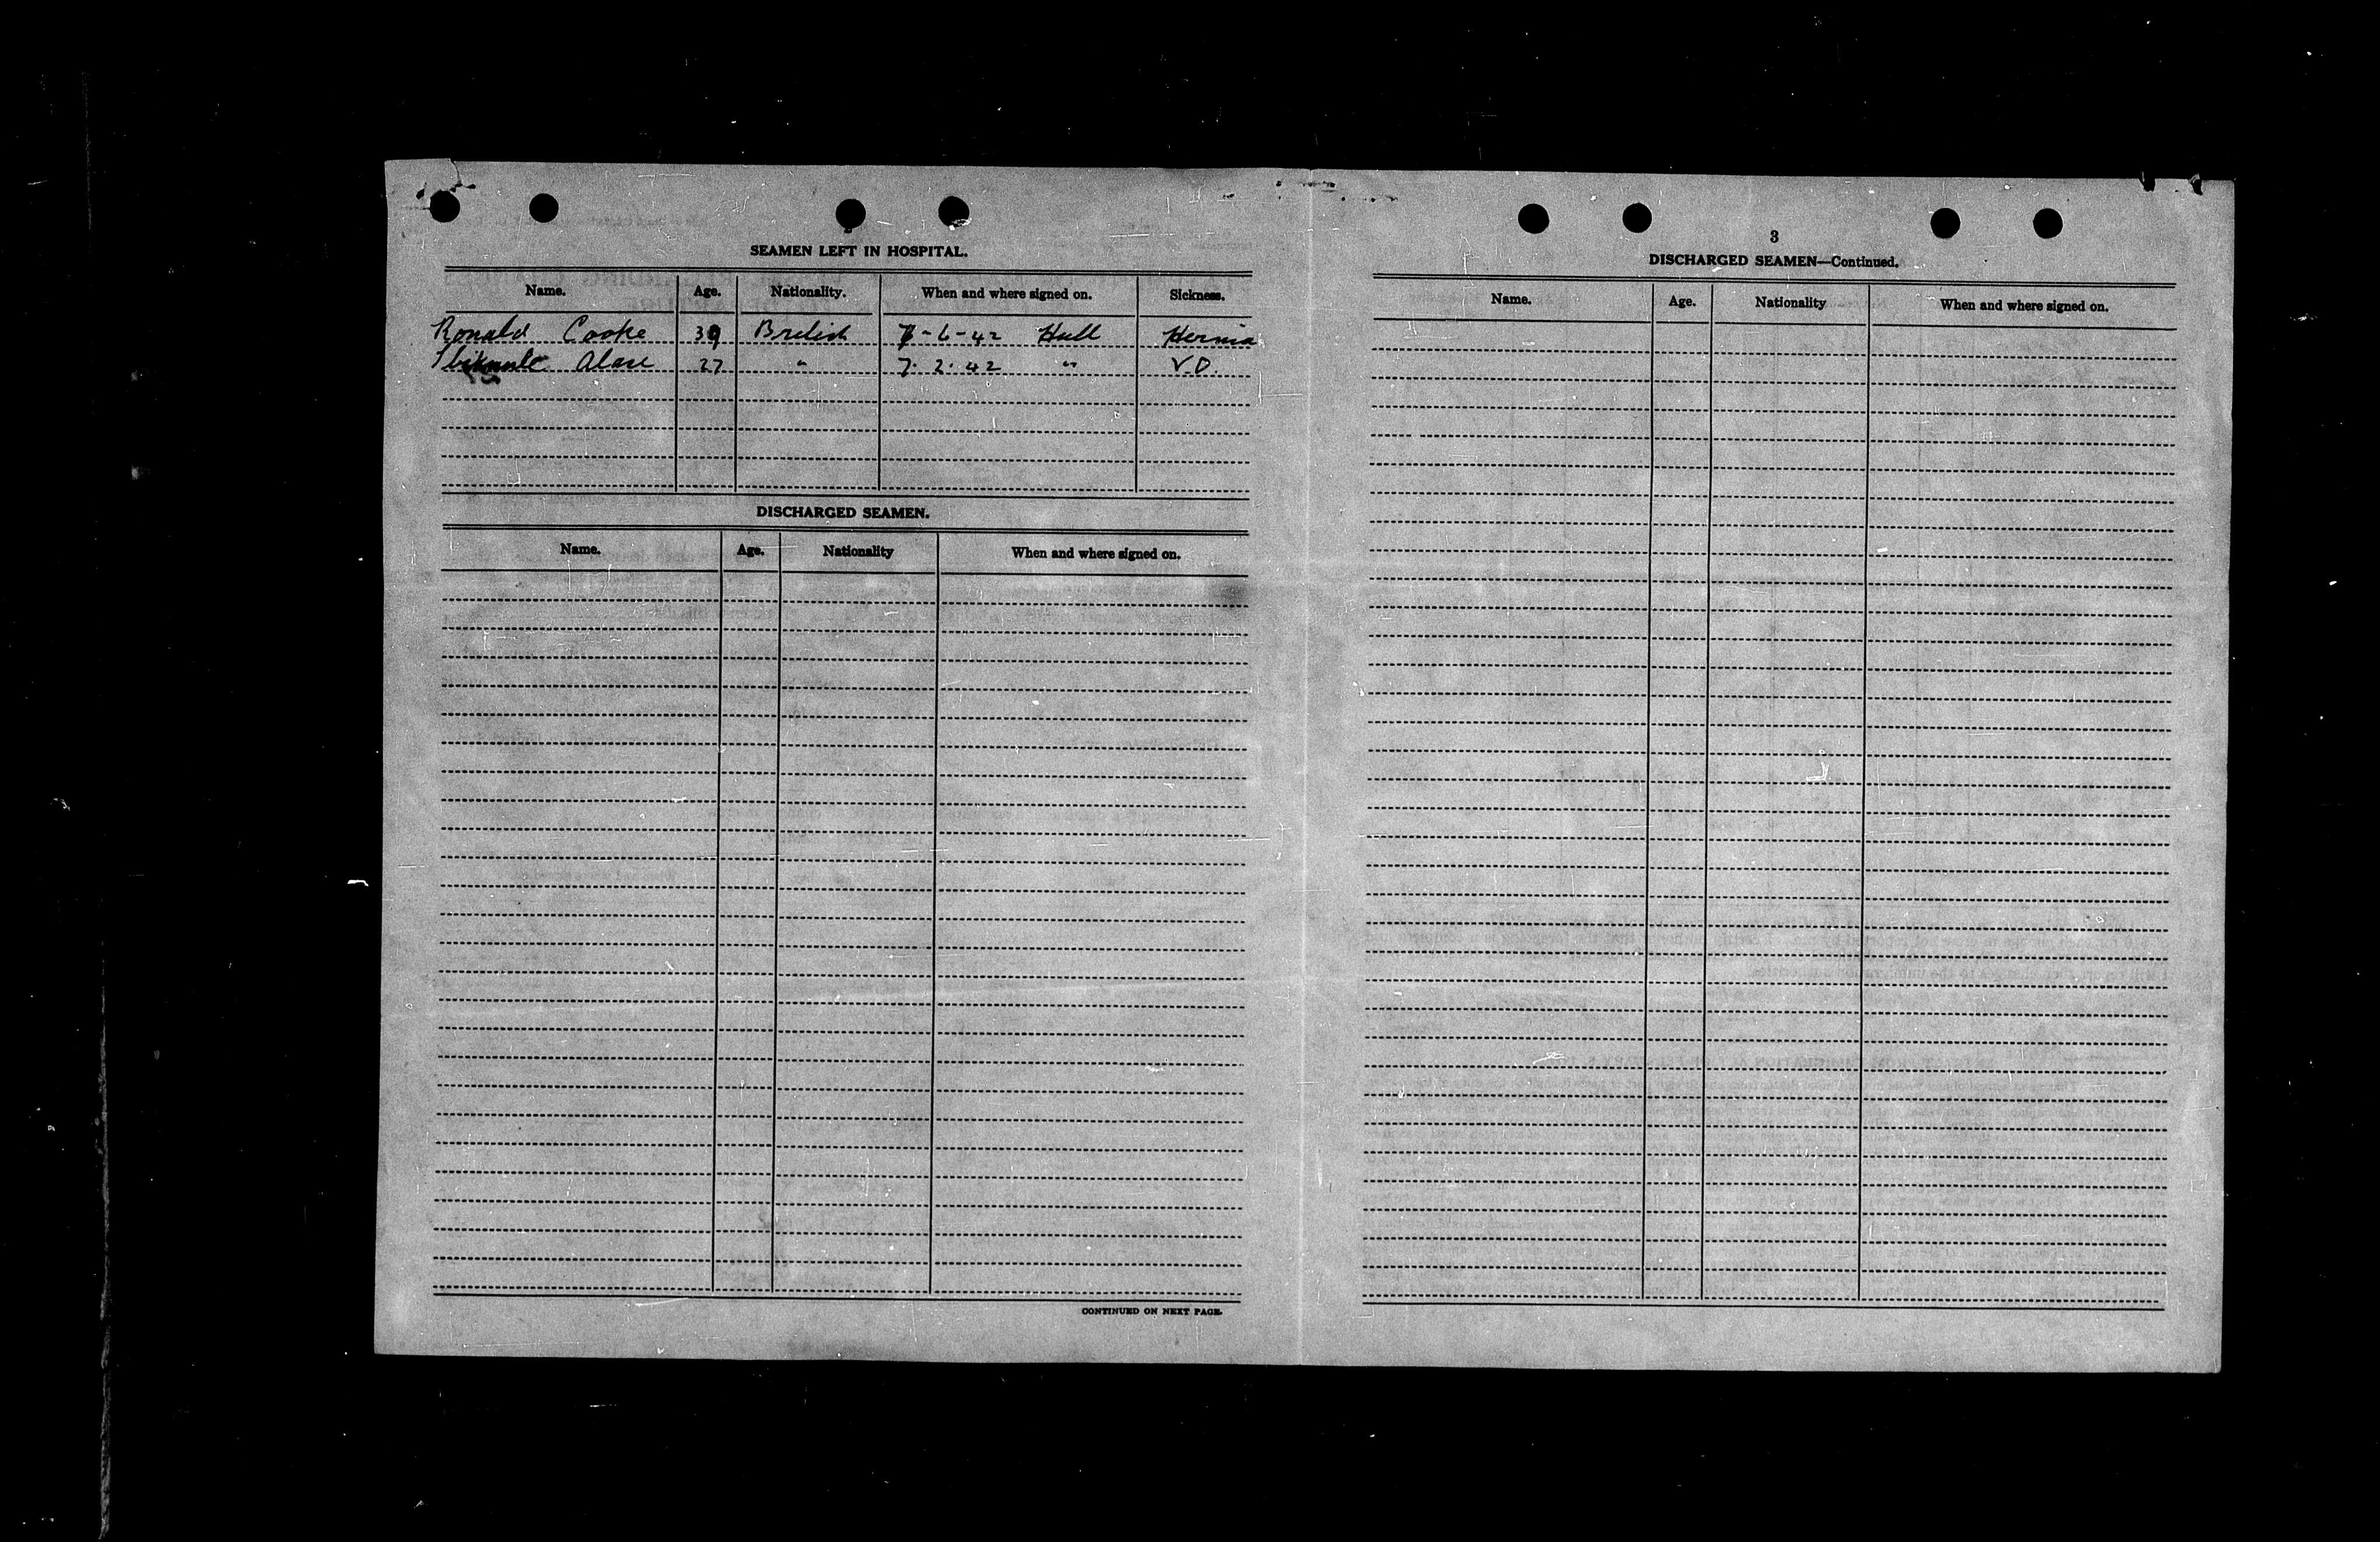 SEAMEN LEFT IN HOSPITAL.
Name. Age. Nationality. When and where signed on. Sickness.
Ronald Cooke 39 British 7-6-42 Hull Hernia
27 " 7.2.42 " V.D.
DISCHARGED SEAMEN.
Name. Age. Nationality When and where signed on.
CONTINUED ON NEXT PAGE.
3
DISCHARGED SEAMEN—Continued.
Name. Age. Nationality When and where signed on.